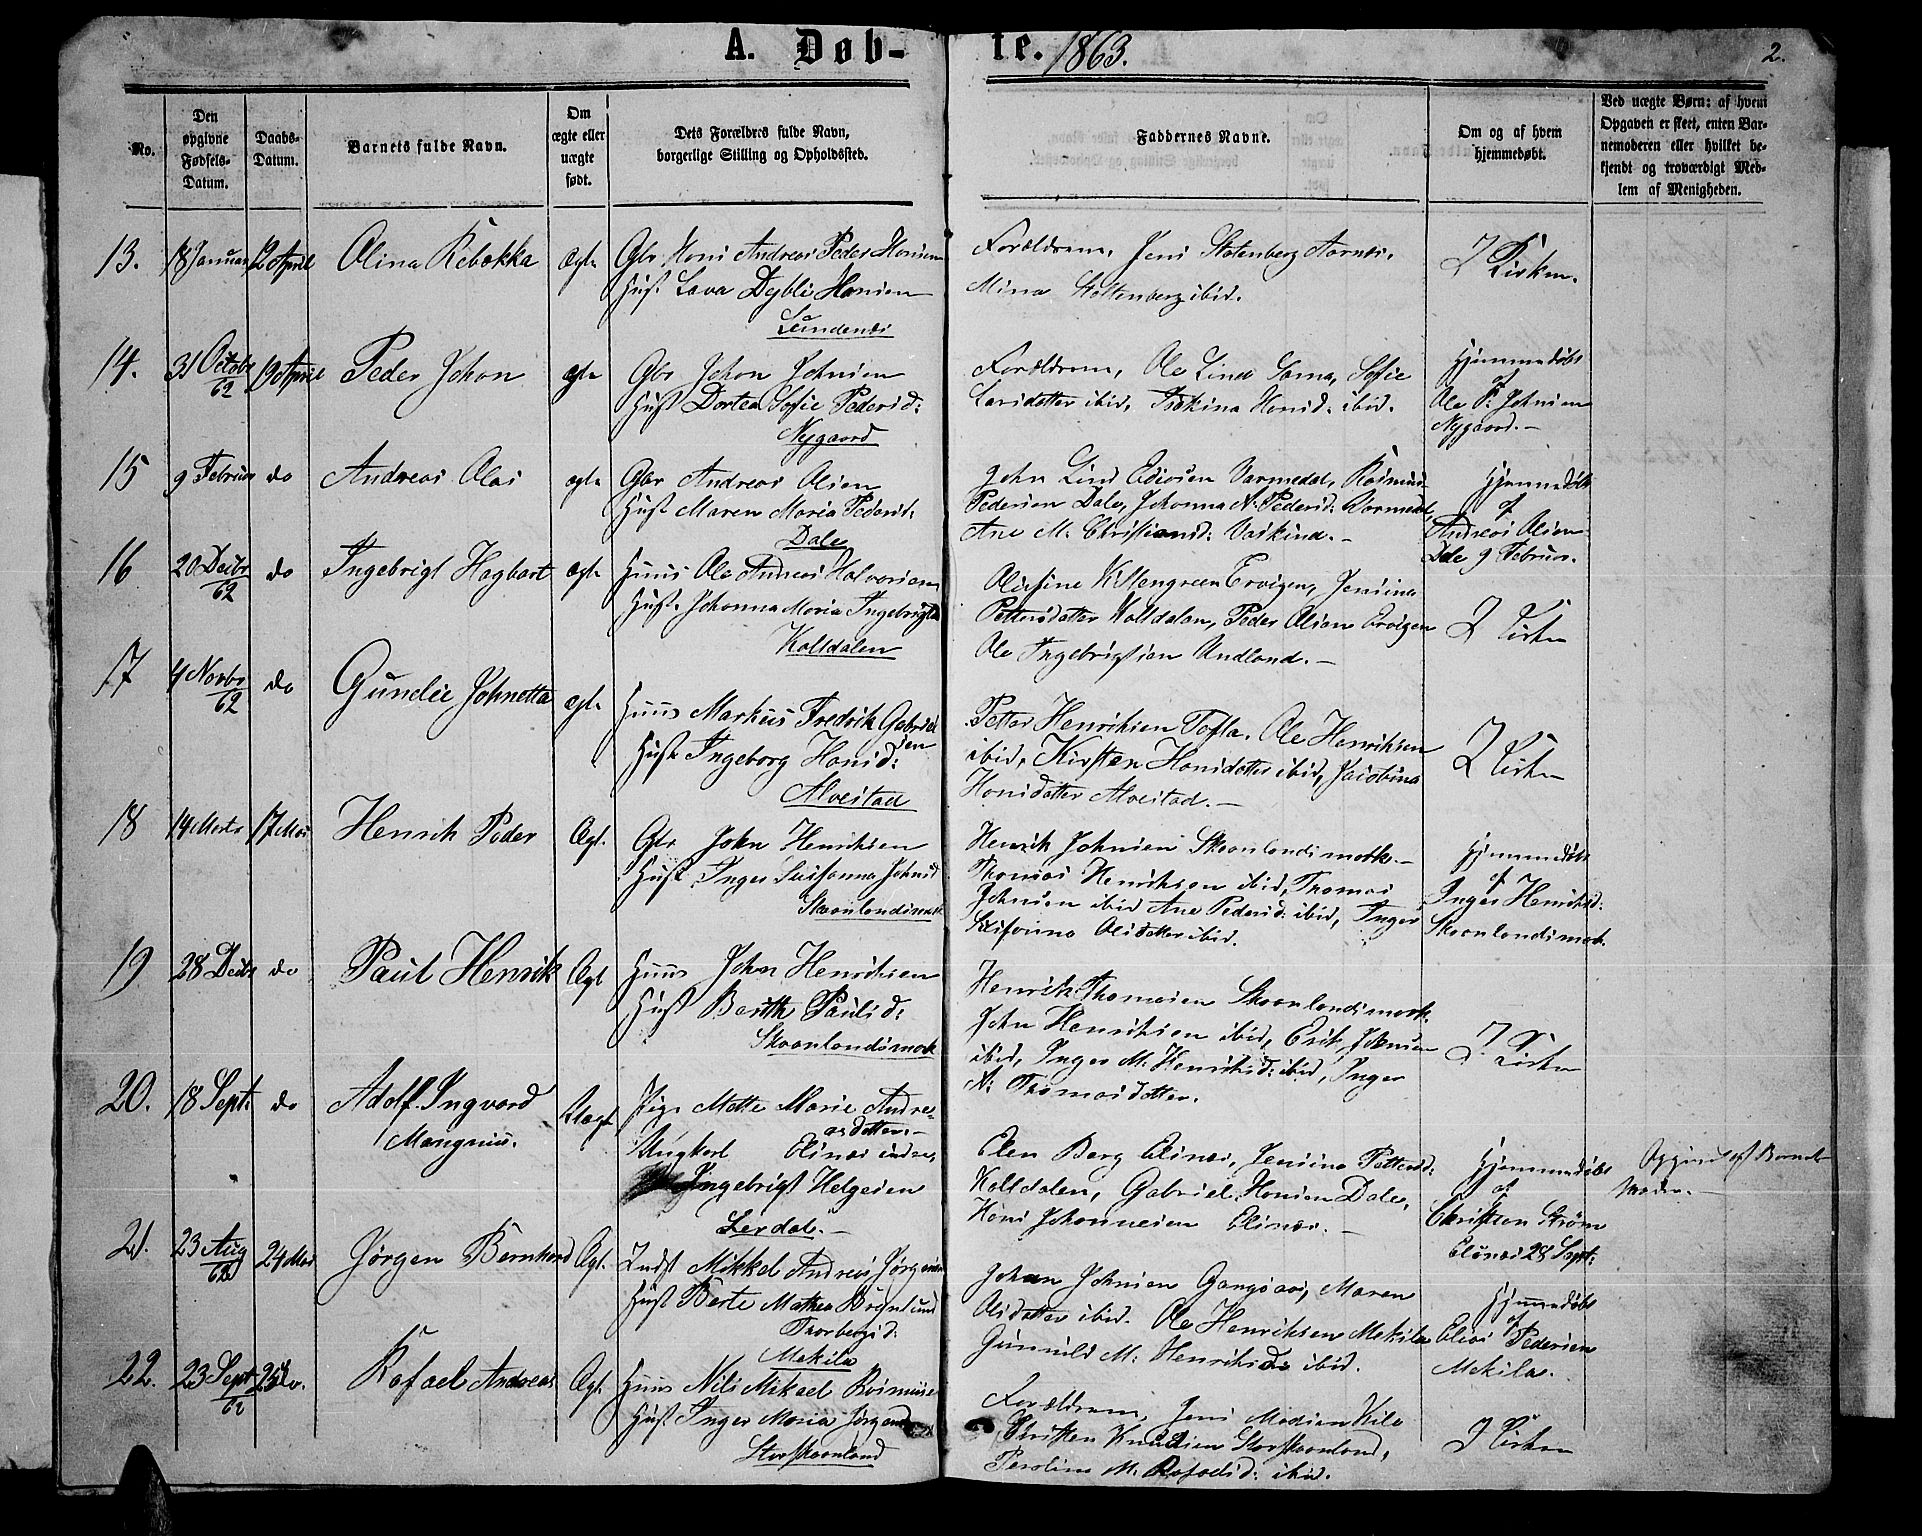 A. Døb-
te. 1863.
2.
No.
Den opgivne Fødsels-Datum.
Daabs-Datum.
Barnets fulde Navn.
Om ægte eller uægte født.
Dets Forældres fulde Navn, borgerlige Stilling og Opholdssted.
Faddernes Navne.
Om og af hvem hjemmedøbt.
Ved uægte Børn: af hvem Opgaven er skeet, enten Barnemoderen eller hvilket bekjendt og troværdigt Medlem af Menigheden.
13. 18 Januar 12 April Olina Rebekka Ægte Gbr Hans Andreas Peder Hansen
Hust Lava Dybli Hansen
Lundenes
Forældrene, Jens Stoltenberg Aarnes,
Mina Stoltenberg ibid.
I Kirken.
14. 31 Octobr 62 12 April Peder Johan ægte Gbr Johan Johnsen
Hust Dortea Sofie Pedersd:
Nygaard
Forældrene, Ole Sama, Sofie
Larsdatter ibid, Hansd: ibid.
Hjemmedøbt
af
Ole P. Johnsen
Nygaard.-
15 9 Februar do Andreas Olai ægte Gbr Andreas Olsen
Hust Maren Maria Pedersd:
Dale
John Lind Varmedal, Rasmus
Pedersen Dale, Johanna N. Pedersd:
Ane M. Christiansd: Vaskind.-
Hjemmedøbt
af
Andreas Olsen
Dale 9 Februar.
16 20 Decbr 62 do Ingebrigt Hagbart ægte Huus Ole Andreas Halvorsen
Hust. Johanna Maria Ingebrigtsd
Kalsdalen
Kittengreen Ervigen, Jensina
Pettersdatter Kalsdalen, Peder Olsen Ervigen
Ole Ingebrigtsen Undland.-
I Kirken
17 4 Novbr 62 do Gundie Johnetta ægte Huus Markus Fredrik Gabriel
sen
Hust Ingeborg Hansd:
Alvestad
Petter Henriksen Tofta. Ole Henriksen
ibid, Kirsten Hansdatter ibid, Jacobina
Hansdatter Alvestad.-
I Kirken
18 14 Marts 17 Mai Henrik Peder Ægt. Gbr John Henriksen
Hust. Inger Susanna Johnsd
Skaanlandsmark
Henrik Johnsen Skaanlandsmark.-
Thomas Henriksen ibid, Thomas
Johnsen ibid Ane Pedersd: ibid, Inger
Olsdatter ibid.
Hjemmedøbt
af
Inger Henriksd:
Skaanlandsmark.
19 28 Decbr do Paul Henrik Ægt Huus John Henriksen
Hust Berith Paulsd:
Skaanlandsmark
Henrik Thomasen Skaanlandsmark.
John Henriksen ibid, Erik Johnsen
ibid, Inger M. Henriksd: ibid, Inger
N. Thomasdatter.
I Kirken
20. 18 Sept: do Adolf Ingvard
Mangnus. Uægt Pige Mette Marie Andre-
asdatter.-
Ungkarl Elsnes
Ingebrigt Helgesen
Lerdal.-
Elen Berg Elsnes, Jensina Pettersd:
Kalsdalen, Gabriel Hansen Dale,
Hans Johannesen Elsnes.-
Hjemmedøbt
af
Christian Strøm
Elsnes 28 Sept:
Opgivet af Barnets
Moder.-
21. 23 Aug 62 24 Mai Jørgen Bernhard Ægt. Indst Mikkel Andreas Jørgensen
Hust Berte Mathea
Thorbersd:
Mekila
Johan Johnsen Gangsaas, Maren
Olsdatter ibid. Ole Henriksen Mekila
Gunnild M. Henriksd: ibid.
Hjemmedøbt
af
Elias Pedersen
Mekila.
22. 23 Sept 62 25 do. Rafael Andreas Ægt. Huus Nils Mikael Rasmusen
Hust Inger Maria Jørgensd
Storskaanland
Forældrene, Jens Madsen Kila
Christen Knudsen Storskaanland,
Peroline M. Rafaelsd: ibid.
I Kirken